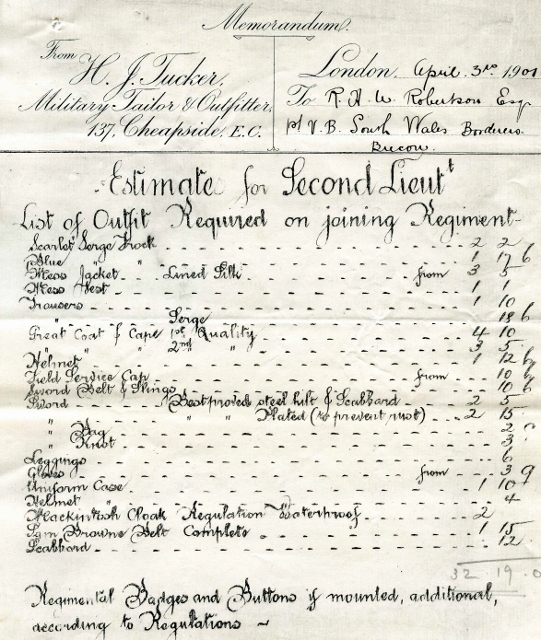 Memorandum.
From
H. J. Tucker,
Military Tailor & Outfitter,
137, Cheapside, E.C.
London, April 3rd 1901
To R. H. W. Robertson Esq
1st V. B. South Wales Borderers
Brecon.
Estimate for Second Lieutt
List of Outfit Required on joining Regiment
Scarlet Serge Frock 2 2
Blue " " 1 17 6
Mess Jacket Lined Silk from 3 5
Mess Vest 1 1
Trousers 1 10
" Serge 18 6
Great Coat & Cape 1st Quality 4 10
" " 2nd " 3 5
Helmet 1 12 6
Field Service Cap from 10 6
Sword Belt & Slings 10 6
Sword Best proved steel hilt & Scabbard 2 5
" " " Plated (to prevent rust) 2 15
" Bag 2
" Knot 3
Leggings 6
Gloves from 3 9
Uniform Case 1 10
Helmet " 4
Mackintosh Cloak Regulation Waterproof 2
Sam Browne Belt Complete 1 15
Scabbard 12
32 19 0
Regimental Badges and Buttons if mounted, additional,
according to Regulations ~